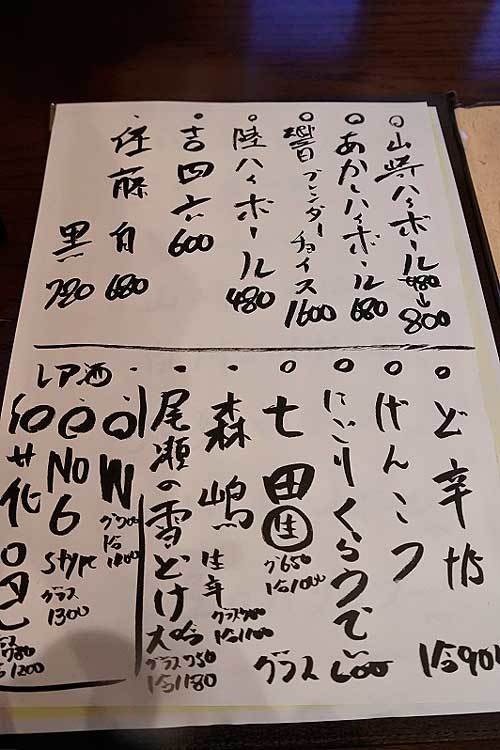 ○山崎ハイボール 480→800
○あかしハイボール 680
○響 ブレンダーチョイス 1600
陸ハイボール 480
吉四六 600
佐藤 白 680
黒 720
○ど辛 +15 1合901
○げんこつ
○にごりくらうでぃ グラス 600
○七田 生 グ650 1合1000
・森嶋 生辛 グラス700 1合1100
・尾瀬の雪どけ 大吟 グラス750 1合1180
レア酒
○W
○No6 Stype グラス1300
○花邑 グラス780 1合1200